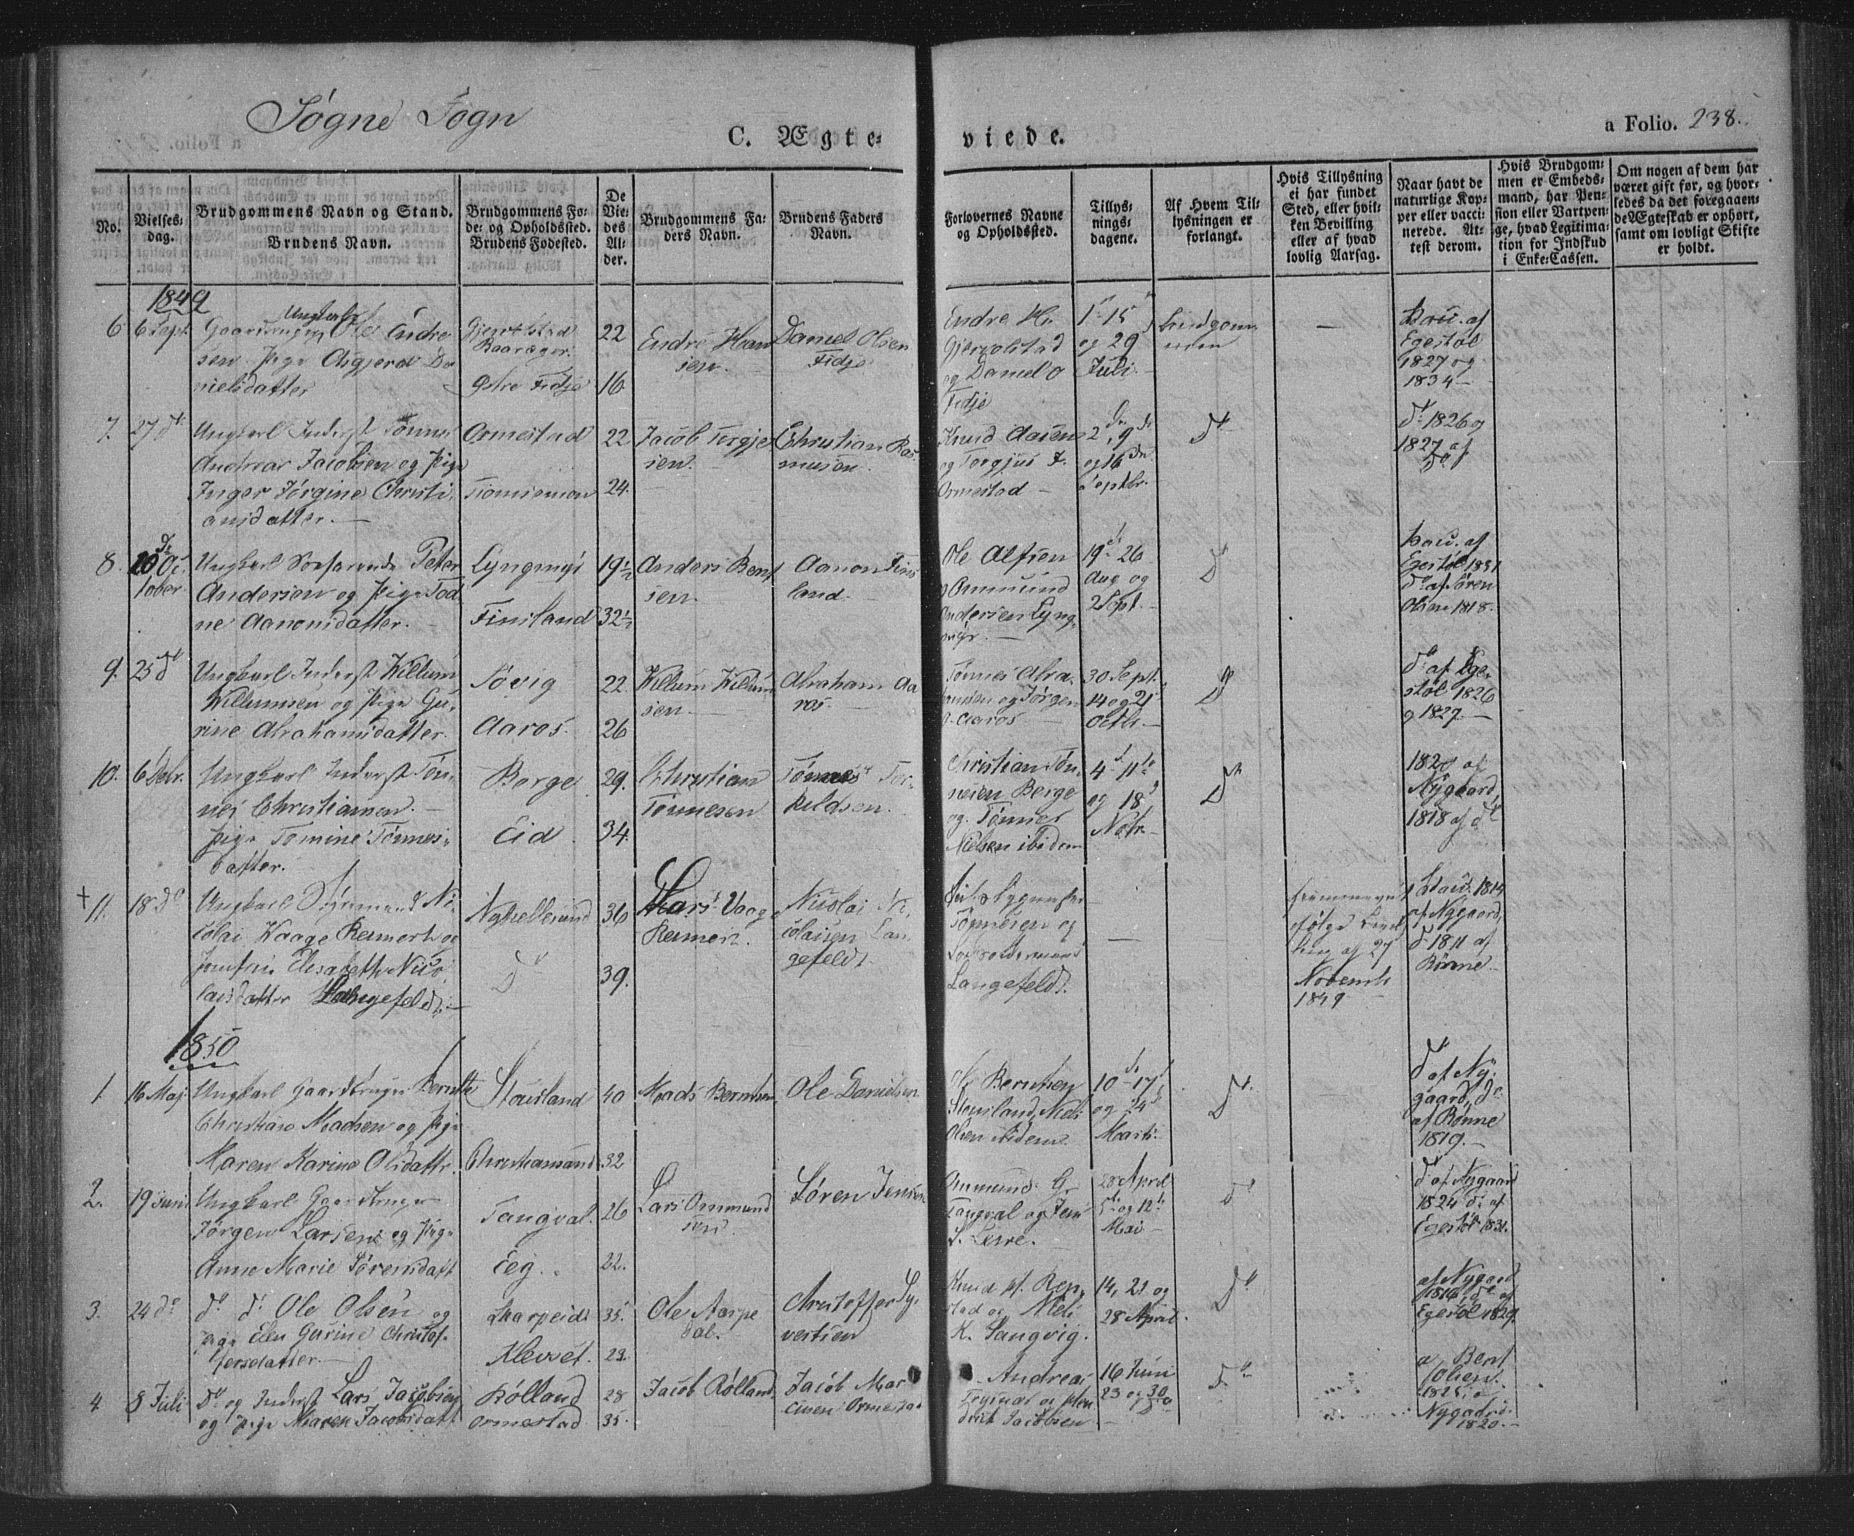 Søgne Sogn
C. Ægteviede.
a Folio. 238.
No.
Vielsesdag.
Brudgommens Navn og Stand.
Brudens Navn.
Brudgommens Føde- og Opholdssted.
Brudens Fødested.
De Viedes Alder.
Brudgommens Faders Navn.
Brudens Faders Navn.
Forlovernes Navne og Opholdssted.
Tillysningsdagene.
Af Hvem Tillysningen er forlangt.
Hvis Tillysning ei har fundet Sted, eller hvilken Bevilling eller af hvad lovlig Aarsag.
Naar havt de naturlige Kopper eller vaccinerede. Attest derom.
Hvis Brudgommen er Embedsmand, har Pension eller Vartpenge, hvad Legitimation for Indskud i Enke-Cassen.
Om nogen af dem har været gift før, og hvorledes da det foregaaende Ægteskab er ophørt, samt om lovligt Skifte er holdt.
1849
6 6 Sept. Ungkarl Gaardbruger Ole Endre
sen Pige Asgjerd Da
nielsdatter
22
Østre Fidje 16
Endre Han
sen
Daniel Olsen
Fidje
Endre H.
og Daniel O
Fidje
1 15
og 29
Juli
Brudgom
men
Vacc. af
Egestøl
1827 og
1834
7. 27 do Ungkarl Inderst Tønnes
Andreas Jacobsen og Pige
Inger Jørgine Christi
ansdatter.
Ormestad 22
24.
Jacob Torgje
sen.
Christian Ras
musen.
Knud Aasen
og Torgjus J.
Ormestad
2, 9
og 16
Septbr.
do
do 1826 og
1827 af
do
8. 20 Oc
tober
Ungkarl Søefarende Peter
Andersen og Pige Tod
ne Aanonsdatter.
Lyngnøs 19½
Finsland 32½
Anders Bent
sen.
Aanon Fins
land.
Ole Alfsen
og Ommund
Andersen Lyng
19 26
Aug og
2 Sept.
do
Vacc. af
Egestøl 1831
do af Søren
Olsen 1818.
9. 25 do Ungkarl Inderst Willum
Willumsen og Pige Gu
rine Abrahamsdatter.
Søvig 22
Aaros. 26
Willum Willum
sen
Abraham Aa
ros
Tønnes Abra
hamsen og Jørgen
Aaros
30 Sept.
14 og 21
Octbr.
do
do af Ege
støl 1826
og 1827.
10. 6 Debr. Ungkarl Inderst Tøn
nes Christiansen.
Pige Tomine Tønnes
datter.
Berge 29.
Eid 34.
Christian
Tønnesen
Tønnes Tor
kildsen.
Christian Tøn
nesen Berge
og Tønnes
Nielsen ibidem
4 11
og 18
Nobr.
do
1820 af
Nygaard,
1818 af do
+ 11. 18 do Ungkarl Styrmand Ni
colai Waage Reimert og
Jomfru Elisabeth Nico
laisdatter Langefeldt.
Ny Hellesund 36
do 39.
Lars Vaag
Reimert.
Nicolai Ni
colaisen Lan
gefeldt
Tønnesen og
Langefeldt
ifølge
af 27
Novemb.
1849
Vacc. 1814
af Nygaard,
do 1811 af
Rønne
1850
1. 16 Maj Ungkarl Gaardbruger Berndt
Christian Madsen og Pige
Maren Karine Olsdatter
Stousland 40
Christiansand 32
Mads Berntsen
Ole Danielsen
Ole Berntsen
Stousland, Niels
Olsen ibidem
10 17
og 24
Marts
do
do af Ny
gaard, do
af Rønne
1819.
2. 19 Juni Ungkarl Gaardbruger
Jørgen Larsen og Pige
Anne Marie Sørensdatt
Tangval. 26
Eeg. 22.
Lars Ommund
sen
Søren Jensen
Ommund G.
Tangval og Jens
28 April
5 og 12
Mai
do
do af Nygaard
1824 do af
Egestøl 1831.
3. 24 do do do Ole Olsen og
Pige Elen Gurine Christof
fersdatter
Harpeid 35
Klevet. 23.
Ole Harpe
dal.
Christoffer Sy
vertsen
Knud P. Rep
stad og Niels
K. Langvig.
14, 21 og
28 April.
do
af Nygaard
1816, do af
Egestøl 1829.
4 8 Juli do og Inderst Lars Jacobsen
og Pige Maren Jacobsdatt
Hølland 28
Ormestad 35
Jacob Hølland
Jacob Mar
cusen Ormestad
Andreas
Jacobsen
16 Juni
23 og 30
do
Bent
Olsen
1825, a
Nygaard
1820.